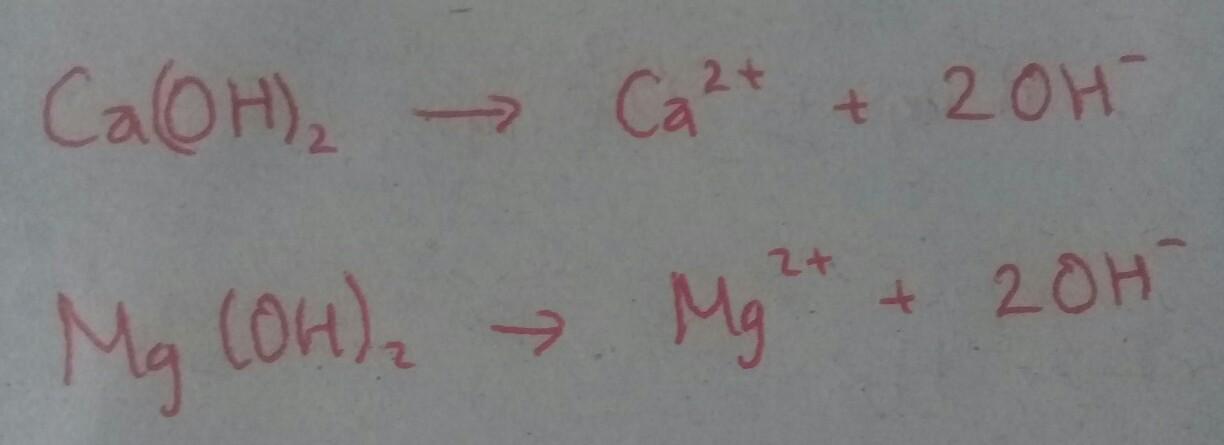 Ca(OH)₂ → Ca²⁺ + 2OH⁻
Mg(OH)₂ → Mg²⁺ + 2OH⁻